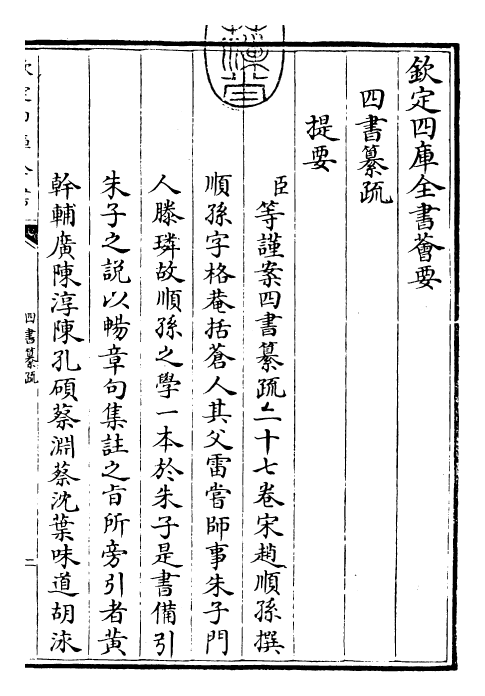 欽定四庫全書薈要
四書纂疏
提要
臣等謹案四書纂疏二十七卷宋趙順孫撰
順孫字格菴括蒼人其父雷嘗師事朱子門
人滕璘故順孫之學一本於朱子是書備引
朱子之說以暢章句集註之㫖所旁引者黄
幹輔廣陳淳陳孔碩蔡淵蔡沈葉味道胡泳
四書纂疏